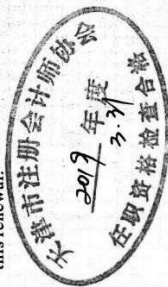 this renewal.
天津市注册会计师协会
2019 年度
3.31
任职资格检查合格